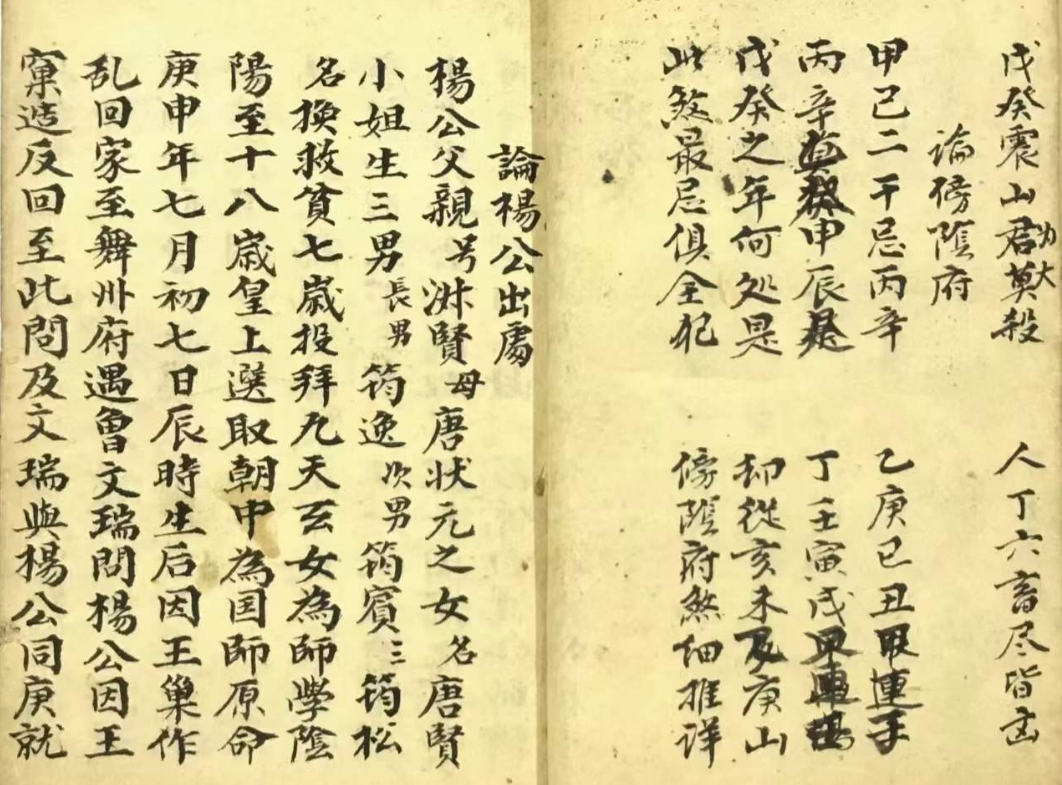 戊癸震山君莫殺力大 人丁六畜尽皆凶
論傍隂府
甲己二干忌丙辛 乙庚巳丑甲連手
丙辛申辰是 丁壬寅戌
戊癸之年何処是 却從亥未及庚山
此煞最忌俱全犯 傍隂府煞细推详
論楊公出處
楊公父親号淋賢母唐状元之女名唐賢
小姐生三男長男筠逸次男筠賓三筠松
名換救貧七歲投拜九天玄女為師學隂
陽至十八歲皇上選取朝中為囯師原命
庚申年七月初七日辰時生后因王巢作
乱回家至舞州府遇曾文瑞問楊公因王
窠造反回至此問及文瑞與楊公同庚就